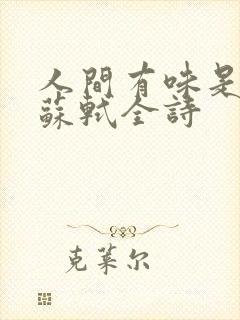 人間有味是
蘇軾全詩
克莱尔